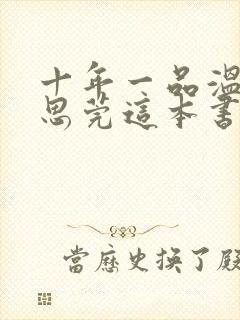 十年一品溫
思莞這本書
當歷史換了殿